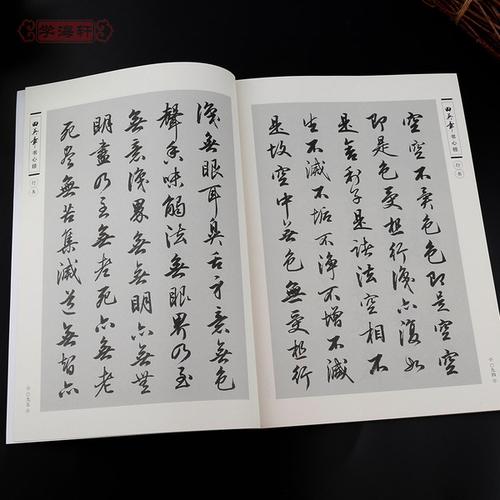 学海轩
田英章·书心经
行书
空空不異色色即是空空
即是色受想行識亦復如
是舍利子是諸法空相不
生不滅不垢不淨不增不減
是故空中無色無受想行
〇九四
田英章·书心经
行书
識無眼耳鼻舌身意無色
聲香味觸法無眼界乃至
無意識界無無明亦無無
明盡乃至無老死亦無老
死盡無苦集滅道無智亦
〇九五